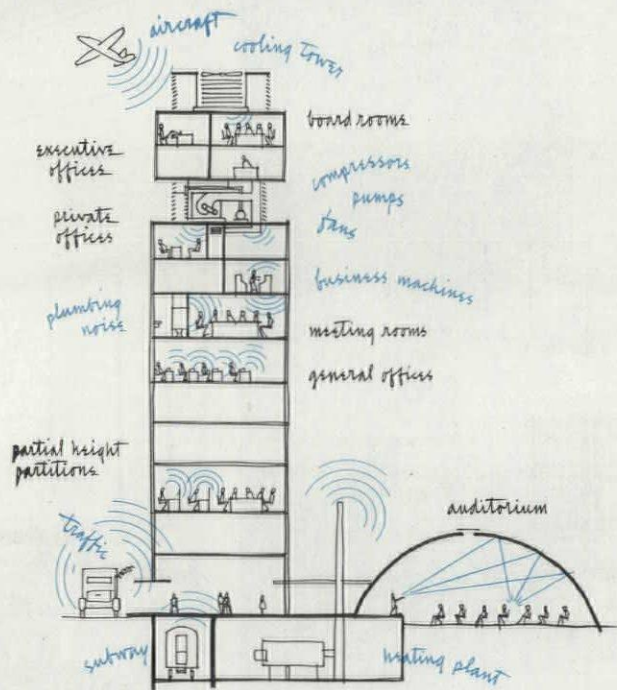 aircraft
cooling tower
board rooms
executive
offices
compressors
pumps
fans
private
offices
business machines
plumbing
noise
meeting rooms
general offices
partial height
partitions
traffic
auditorium
subway
heating plant